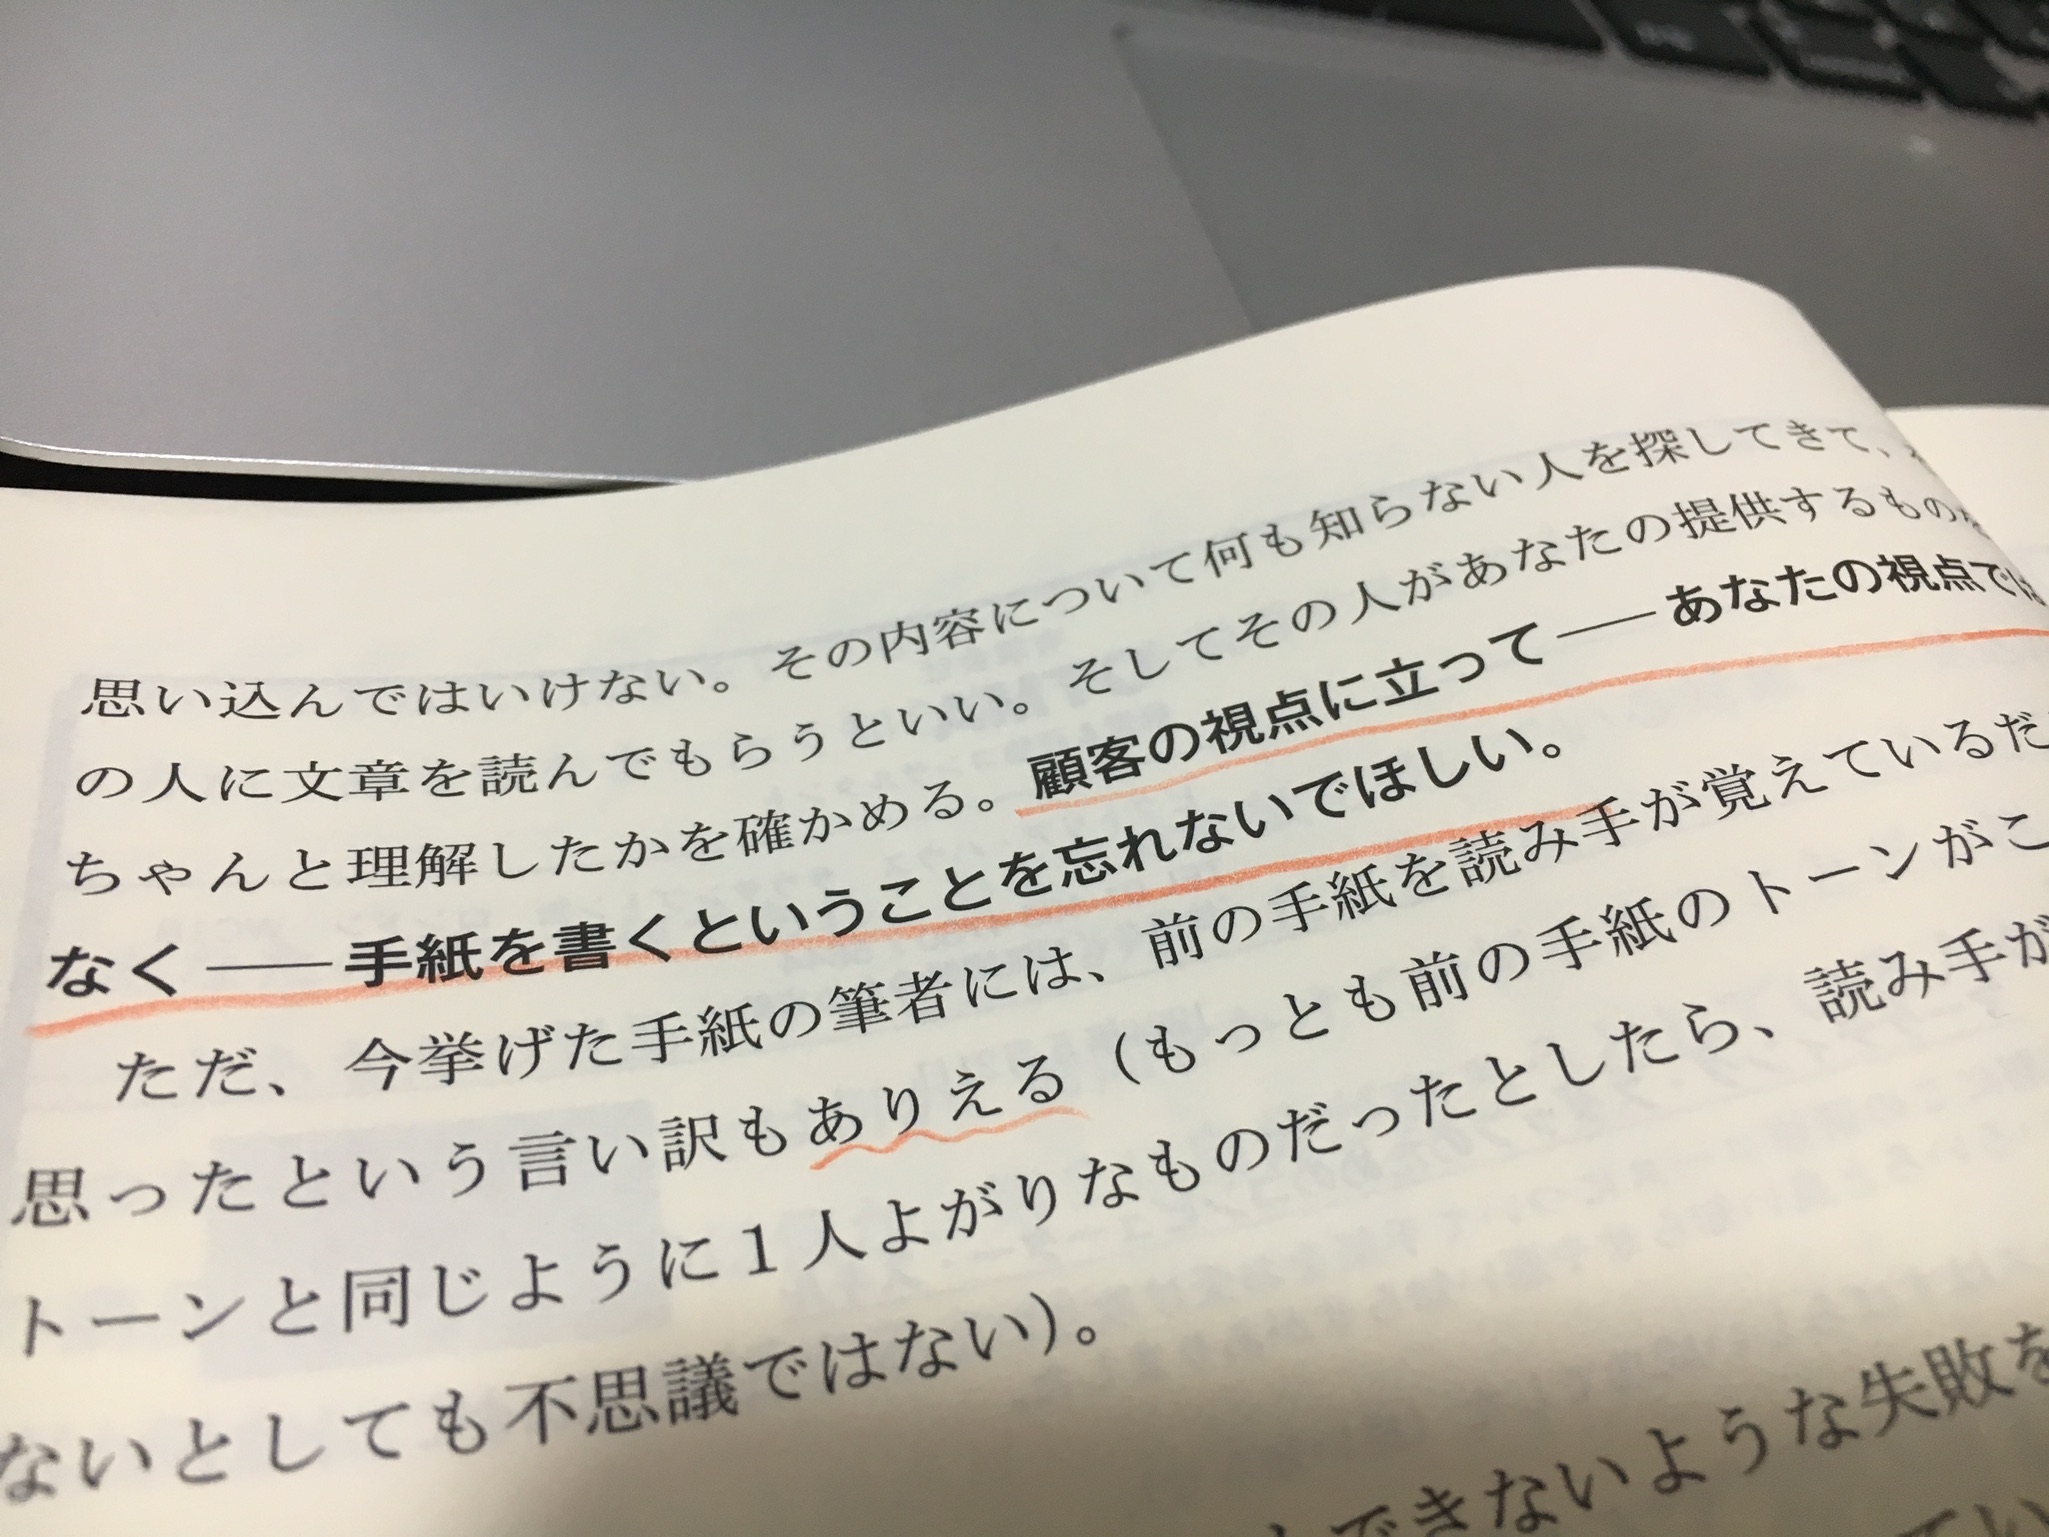 思い込んではいけない。その内容について何も知らない人を探してきて、
の人に文章を読んでもらうといい。そしてその人があなたの提供するもの
ちゃんと理解したかを確かめる。顧客の視点に立って——あなたの視点では
なく——手紙を書くということを忘れないでほしい。
ただ、今挙げた手紙の筆者には、前の手紙を読み手が覚えているだ
思ったという言い訳もありえる（もっとも前の手紙のトーンがこ
トーンと同じように1人よがりなものだったとしたら、読み手が
ないとしても不思議ではない）。
できないような失敗を